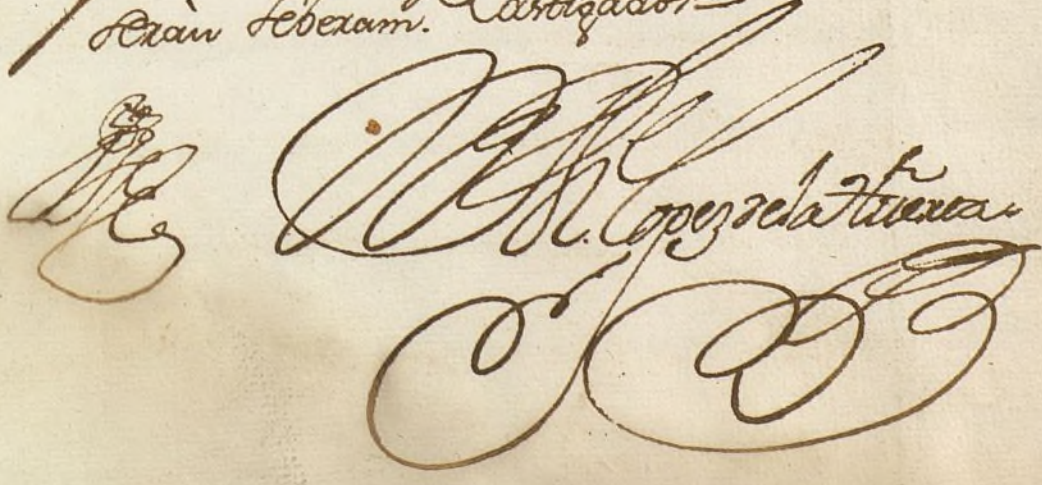 seràn seberam. Castigados
Lopez de la Huerta